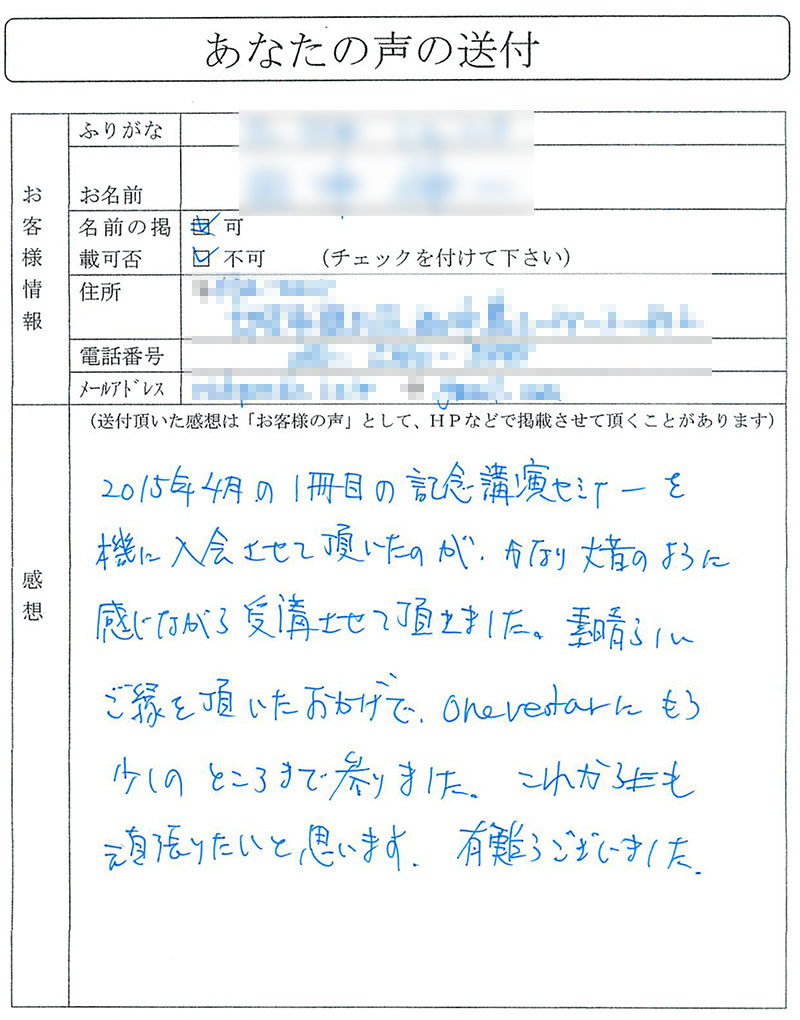 あなたの声の送付
お客様情報
ふりがな
お名前
名前の掲載可否
可
不可 (チェックを付けて下さい)
住所
電話番号
メールアドレス
(送付頂いた感想は「お客様の声」として、HPなどで掲載させて頂くことがあります)
感想
2015年4月の1冊目の記念講演セミナーを
機に入会させて頂いたのが、かなり大昔のように
感じながら受講させて頂きました。素晴らしい
ご縁を頂いたおかげで、onevestarにもう
少しのところまで参りました。これからも
頑張りたいと思います。有難うございました。